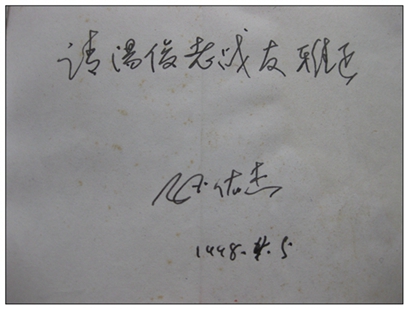 请汤俊老战友雅正
佑杰
1998.4.5